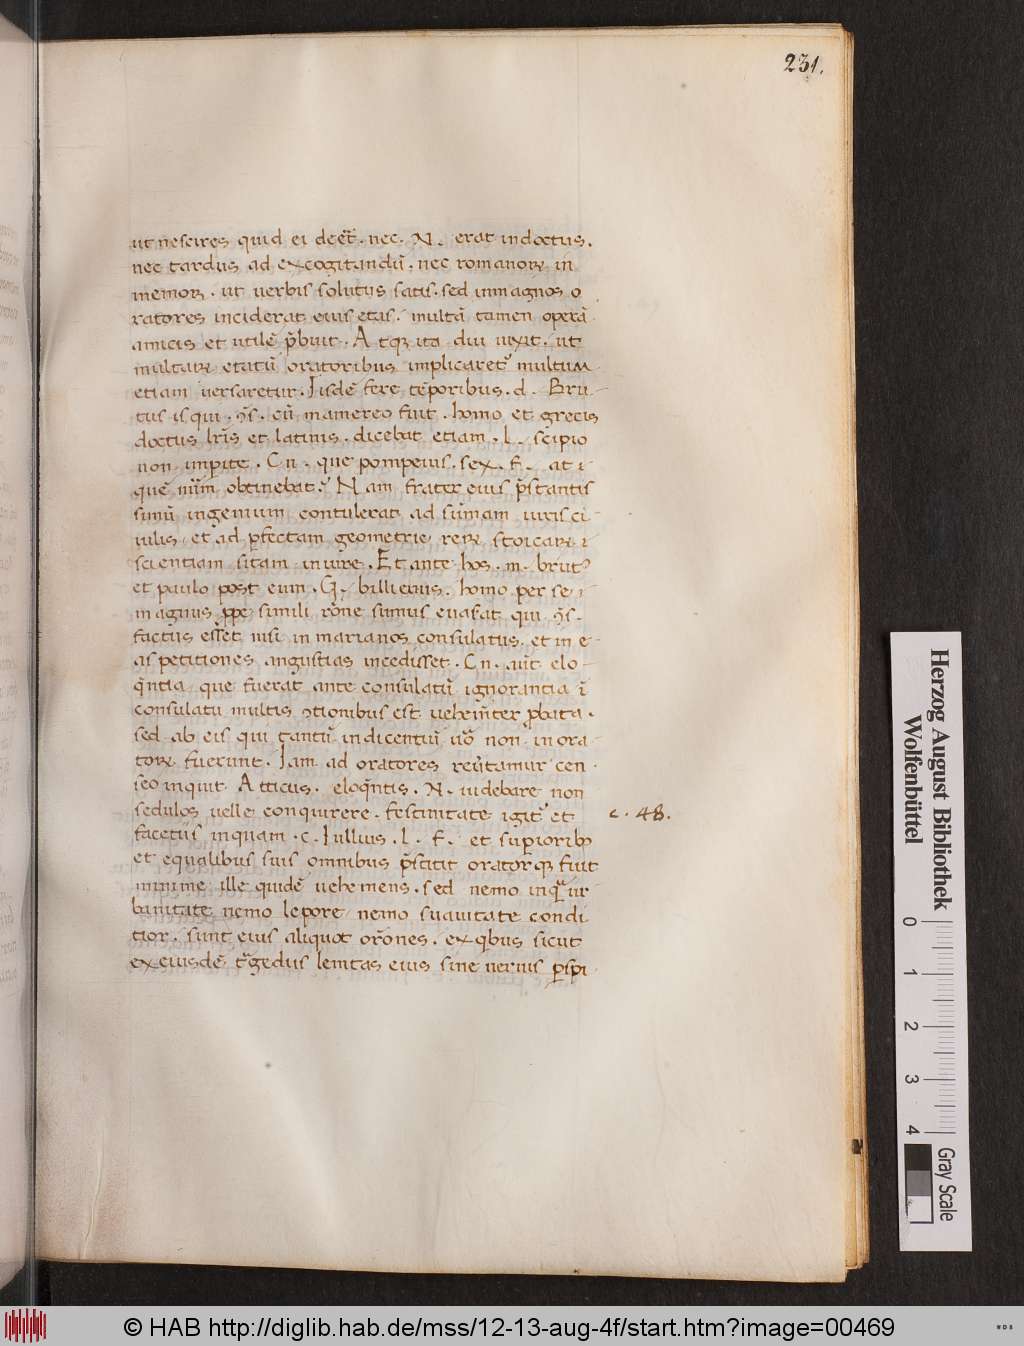 231.
ut nescires quid ei deēt̄. nec. N. erat indoctus.
nec tardus ad excogitandū. nec romanoꝝ in
memor. ut uerbis solutus satis. sed inmagnos o
ratores inciderat eius etas. multā tamen operā
amicis et utilē p̄buit. Atqꝫ ita diu uixit. ut
multaꝝ etatū oratoribus implicaret᷑ multum
etiam uersaretur. Iisdē fere tēporibus. d. Bru-
tus is qui. ꝯs̄. cū mamerco fuit. homo et grecis
doctus lr̄is et latinis. dicebat etiam. l. scipio
non imperite. Cn. que pompeius. sex. f. at i-
quē nūm obtinebat. Nam frater eius p̄stantis
simū ingenium contulerat ad sūmam iuris ci
uilis. et ad ꝑfectam geometrie reꝝ stoicaꝝ
scientiam sitam in iure. Et ante hos. m. brutꝰ
et paulo post eum. G. billienus. homo per se
magnus ꝓpe simili rōne sumus euaserat qui ꝯs̄.
factus esset nisi in marianos consulatus. et in e-
as petitiones angustias incedisset. Cn. aut̄ elo-
q̄ntia que fuerat ante consulatū ignorantia ī
consulatu multis ꝯtionibus est uehem̄ter ꝓbata.
sed ab eis qui tantū in dicentiū uō non in ora-
toꝝ fuerunt. Iam ad oratores reu̅tamur cen-
seo inquit Atticus. eloq̄ntis. N. uidebare non
sedulos uelle conquirere. fescinitate igit᷑ et
c. 48.
facetiis inquam. c. Iullius. l. f. et superioribꝫ
et equalibus suis omnibus p̄stitit oratorqꝫ fuit
minime ille quidē uehemens. sed nemo inq̄ ur
banitate nemo lepore nemo suauitate condi
tior. sunt eius aliquot or̄ones. ex qibus sicut
exeiusdē tragedus lenitas eius sine neruis ꝑspi-
Herzog August Bibliothek
Wolfenbüttel
0 1 2 3 4
Gray Scale
© HAB http://diglib.hab.de/mss/12-13-aug-4f/start.htm?image=00469